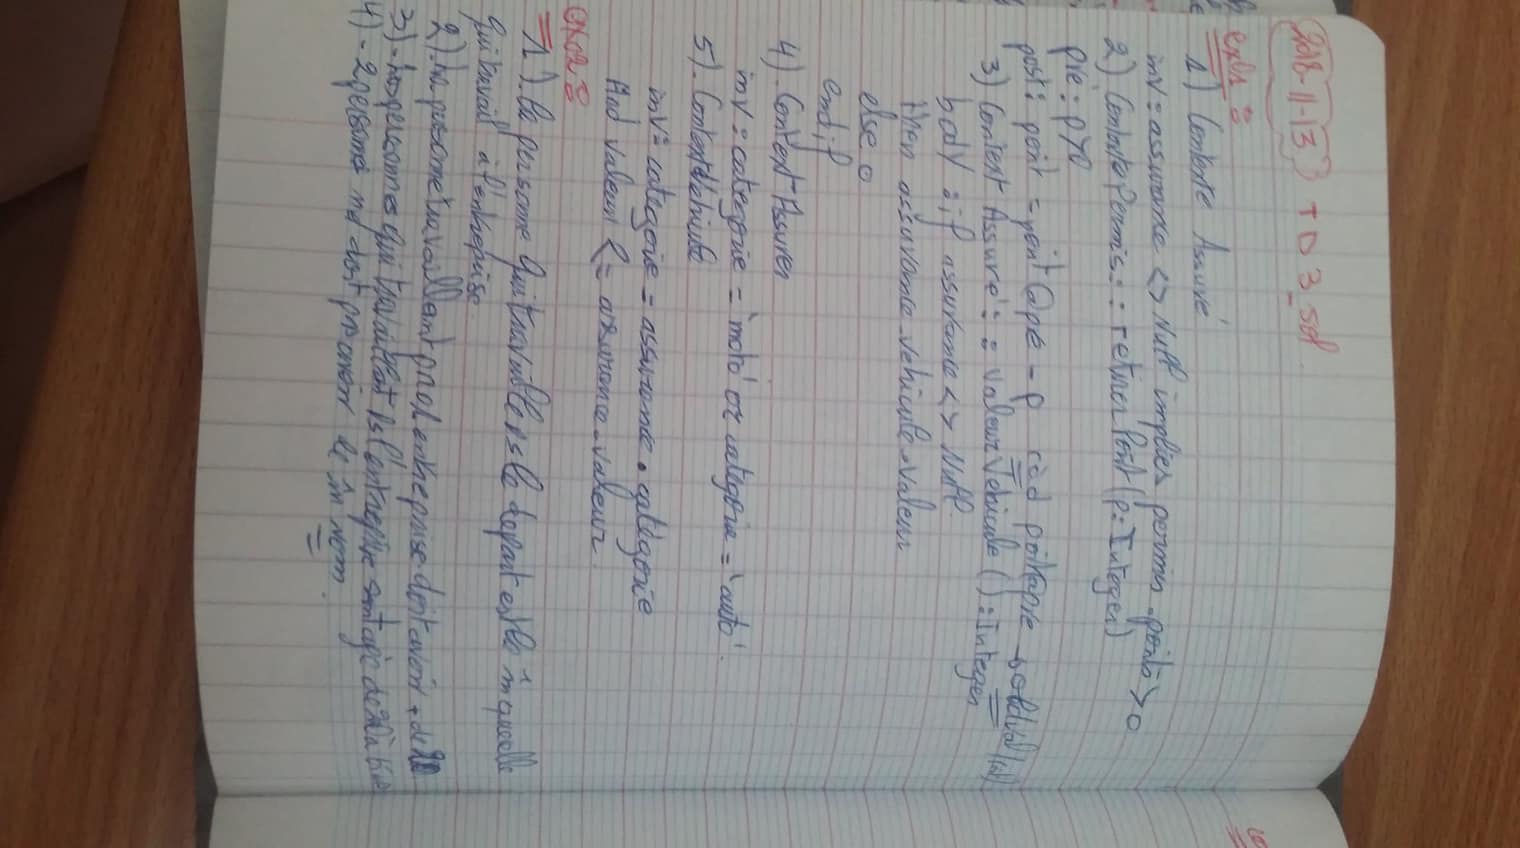 2018-11-13 TD 3 - sol
exo1 :
1) Contexte Assuré
inv : assurance <> Null implies permis.points > 0
2) Contexte Permis :: retirer Point (p: Integer)
pré : p>0
post : point = point@pré - p càd point@pré
3) Context Assuré :: valeur Véhicule () : Integer
body : if assurance <> Null
then assurance.vehicule.valeur
else 0
endif
4). Context Assurer
inv : categorie = 'moto' or categorie = 'auto'.
5). Context Véhicule
inv : categorie = assurance.categorie
And valeur <= assurance.valeur.
exo2 :
1). la personne qui travaille ds le depart est la m̂ que celle
qui travail à l'entreprise.
2). la personne travaillant pr l'entreprise doit avoir + de
3) - les personnes qui travaillent ds l'entreprise sont agé de
4) - 2 personnes ne doit pas avoir le m̂ nom.